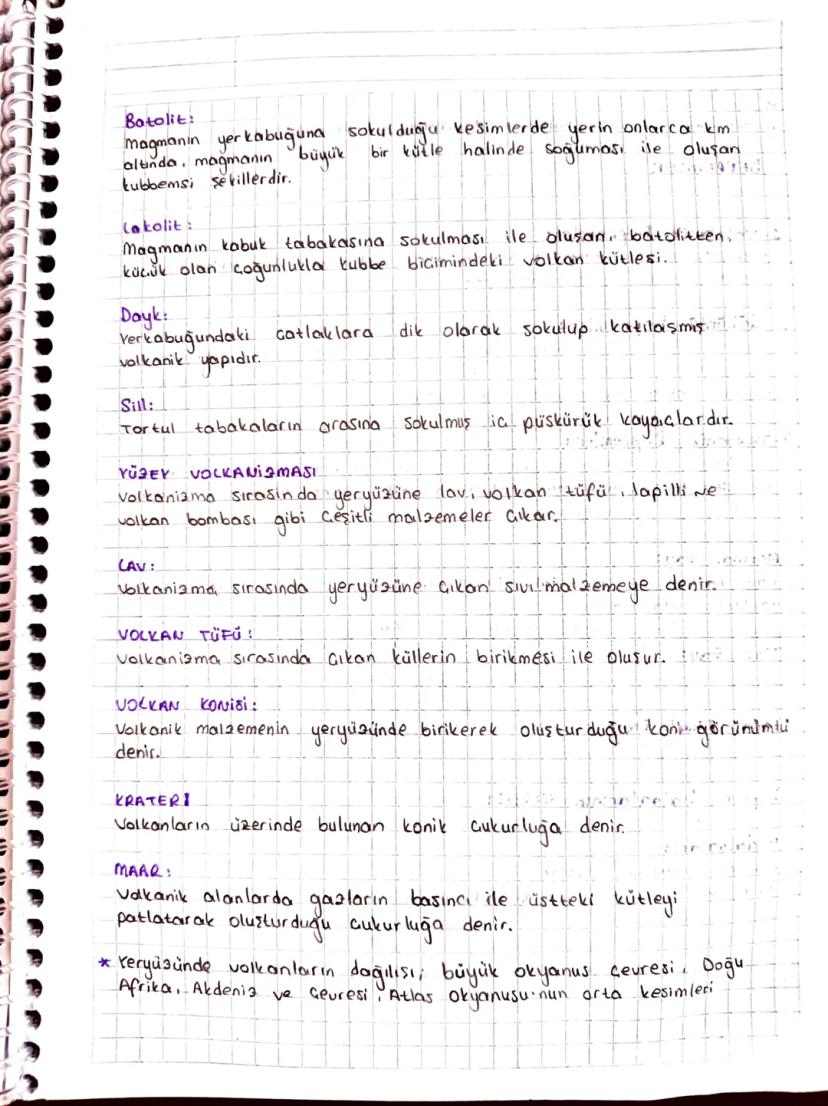 Batolit:
Magmanın yerkabuğuna sokulduğu kesimlerde yerin onlarca km
altında, magmanın büyük bir kütle halinde soğuması ile oluşan
kubbemsi şekillerdir.
Lakolit:
Magmanın kabuk tabakasına sokulması ile oluşan, batolitten,
küçük olan çoğunlukla kubbe biçimindeki volkan kütlesi.
Dayk:
Yerkabuğundaki çatlaklara dik olarak sokulup katılaşmış
volkanik yapıdır.
Sill:
Tortul tabakaların arasına sokulmuş iç püskürük kayaçlardır.
YÜZEY VOLKANİZMASI
Volkanizma sırasında yeryüzüne lav, volkan tüfü, lapilli ve
volkan bombası gibi çeşitli malzemeler çıkar.
LAV:
Volkanizma sırasında yeryüzüne çıkan sıvı malzemeye denir.
VOLKAN TÜFÜ:
Volkanizma sırasında çıkan küllerin birikmesi ile oluşur.
VOLKAN KONİSİ:
Volkanik malzemenin yeryüzünde birikerek oluşturduğu koni görünümlü
denir.
KRATER:
Volkanların üzerinde bulunan konik çukurluğa denir.
MAAR:
Volkanik alanlarda gazların basıncı ile üstteki kütleyi
patlatarak oluşturduğu çukurluğa denir.
* Yeryüzünde volkanların dağılışı; büyük okyanus çevresi, Doğu
Afrika, Akdeniz ve çevresi, Atlas okyanusu'nun orta kesimleri